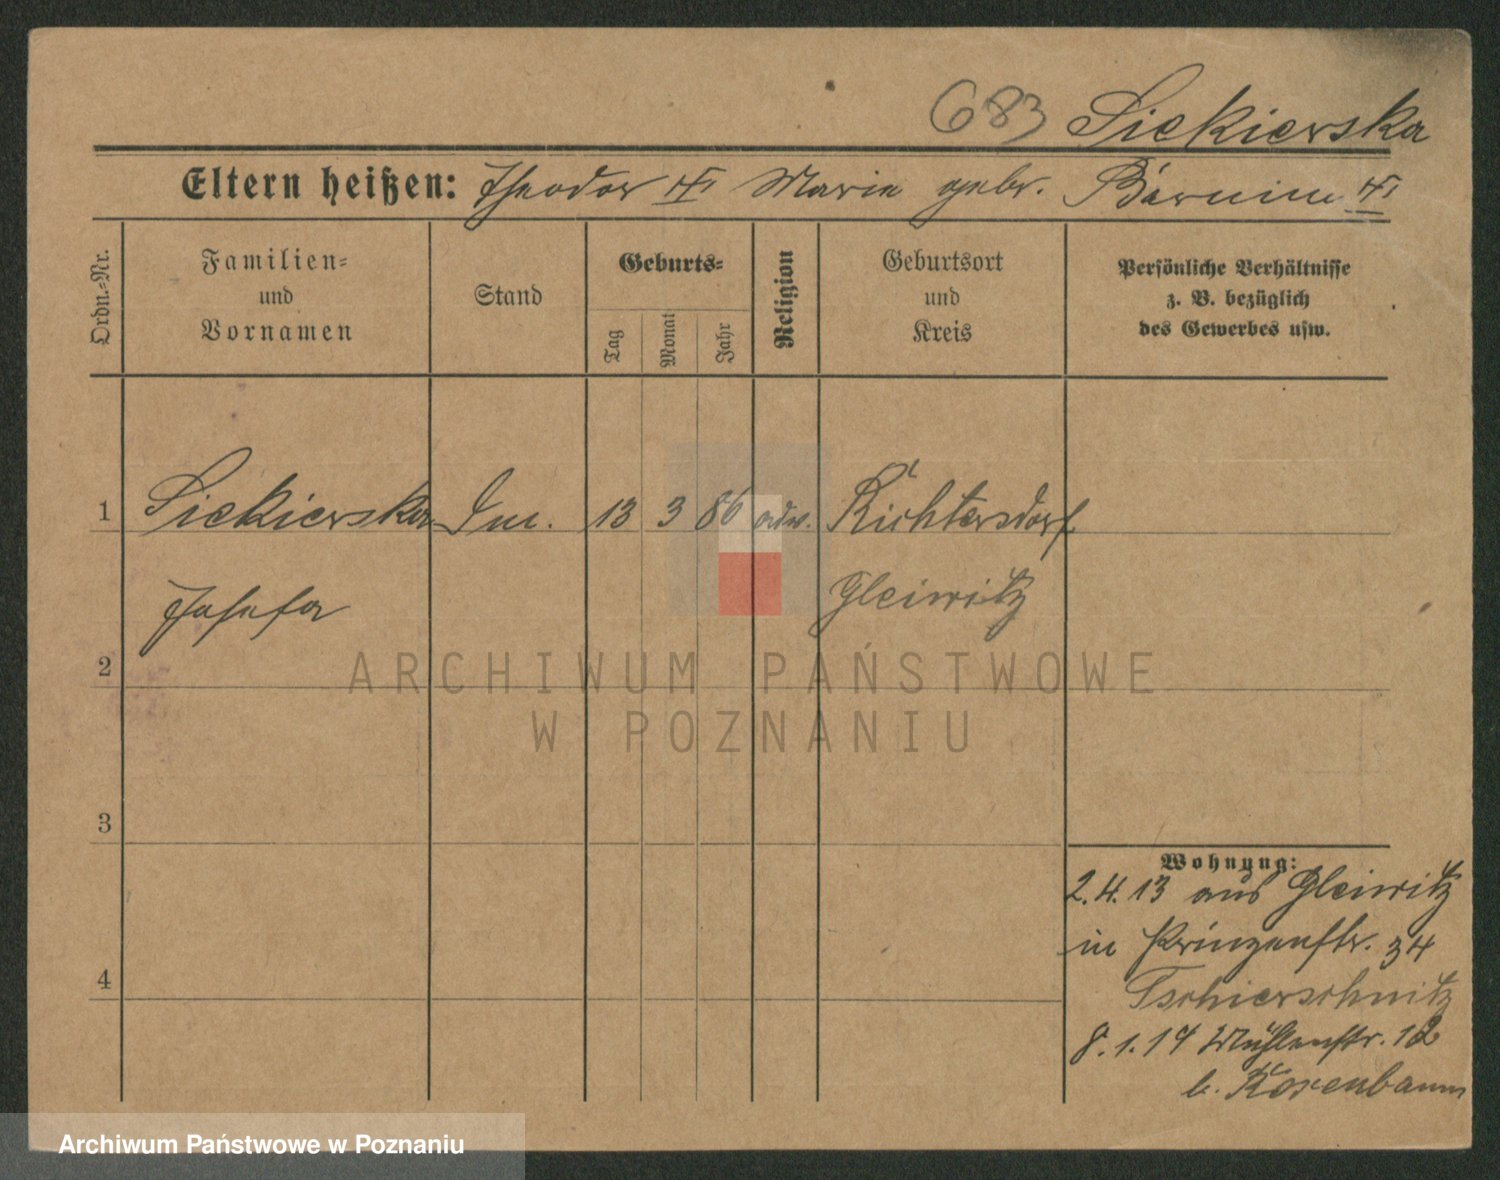 683 Siekierska
Eltern heißen: Theodor Marie gebr.
Ordn.-Nr.
Familien-
und
Vornamen
Stand
Geburts-
Tag
Monat
Jahr
Religion
Geburtsort
und
Kreis
Persönliche Verhältnisse
z. B. bezüglich
des Gewerbes usw.
1 Siekierska 13 3 86 Richtersdorf
Josefa Gleiwitz
2
3
4
Wohnung:
2.4.13 aus Gleiwitz
in Prinzenstr. 34
Tschierschnitz
8.1.14 Mühlenstr. 12
b. Rosenbaum
ARCHIWUM PAŃSTWOWE
W POZNANIU
Archiwum Państwowe w Poznaniu